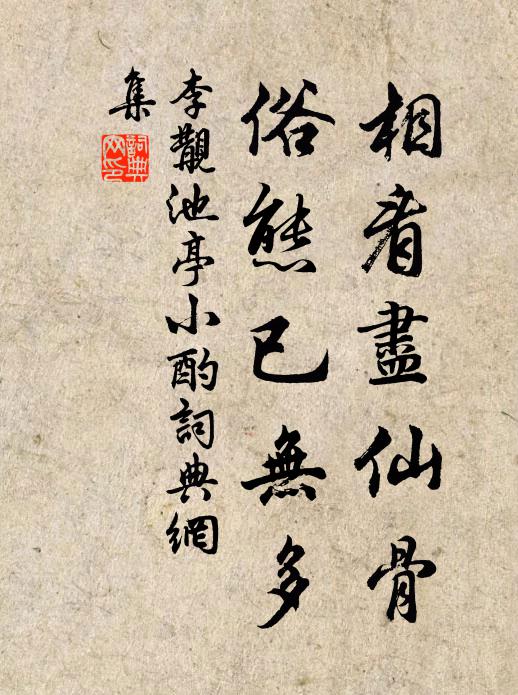 相看盡仙骨
俗態已無多
李觀池亭小酌詞典網
集
詞典
網印